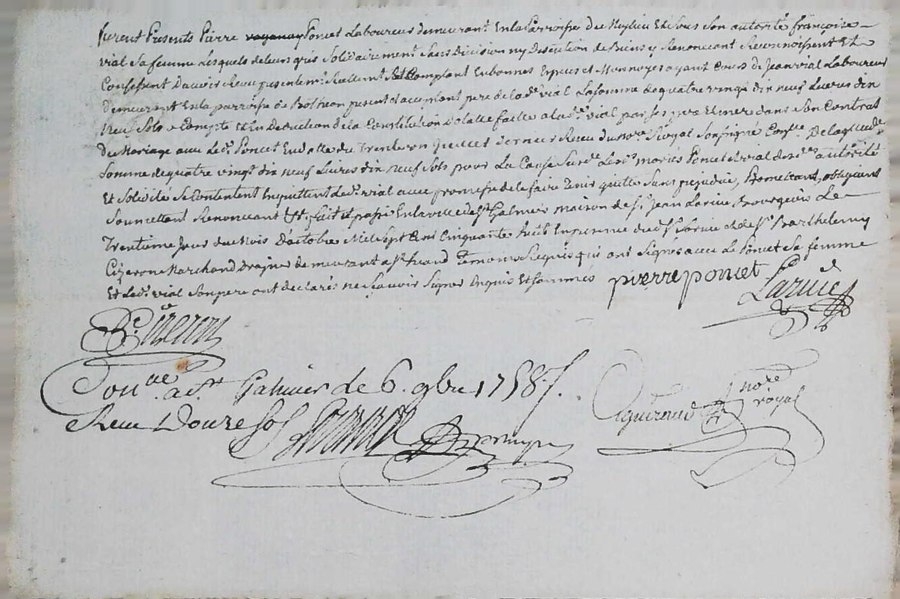 furent Presents Pierre Poncet Laboureur demeurant En la Parroisse de Et Sous Son autorité françoise
vial Sa femme Lesquels de leurs gres Solidairement Sans Division ny de Biens y Renoncant Reconnoissent Et
Confessent D'avoir Receu presentement Reellemt Et Comptant En bonnes Especes et Monnoyes ayant Cours de Jean vial Laboureur
Demeurant En la parroisse de present et acceptant pere de lade vial La somme de quatre vingt dix neuf Livres dix
Neuf Sols a Compte Et En Deduction de la Constitution Dotalle faitte a lade vial par Ses pere Et mere dans Son Contrat
De Mariage avec Led Poncet En datte du dernier Receu du nore Royal Soussigné De laquelle
Somme de quatre vingt dix neuf Livres dix neuf Sols pour La Cause Susde Les mariés Poncet et vial autorité
Et Solidité Se Contentent En quittent Led vial avec promesse de le faire Tenir quitte Sans prejudice, Promettant, obligeant
Soumettant Renoncant fait et passé En la ville de St Galmier maison de Sr Jean Larue Bourgeois Le
Trentieme Jour du Mois D'octobre Mil Sept Cent Cinquante huit En presence dud Sr Larue et de Sr Barthelemy
Cizeron Marchand demeurant a St Temoins Requis qui ont Signés avec Le Poncet Sa femme
Et Led vial Son pere ont declarés ne Sçavoir Signer Enquis Et Sommés pierre poncet
Larue
Cizeron
Con.lé a St Galmier le 6. 9bre 1758
Receu Douze Sols
nore
royal